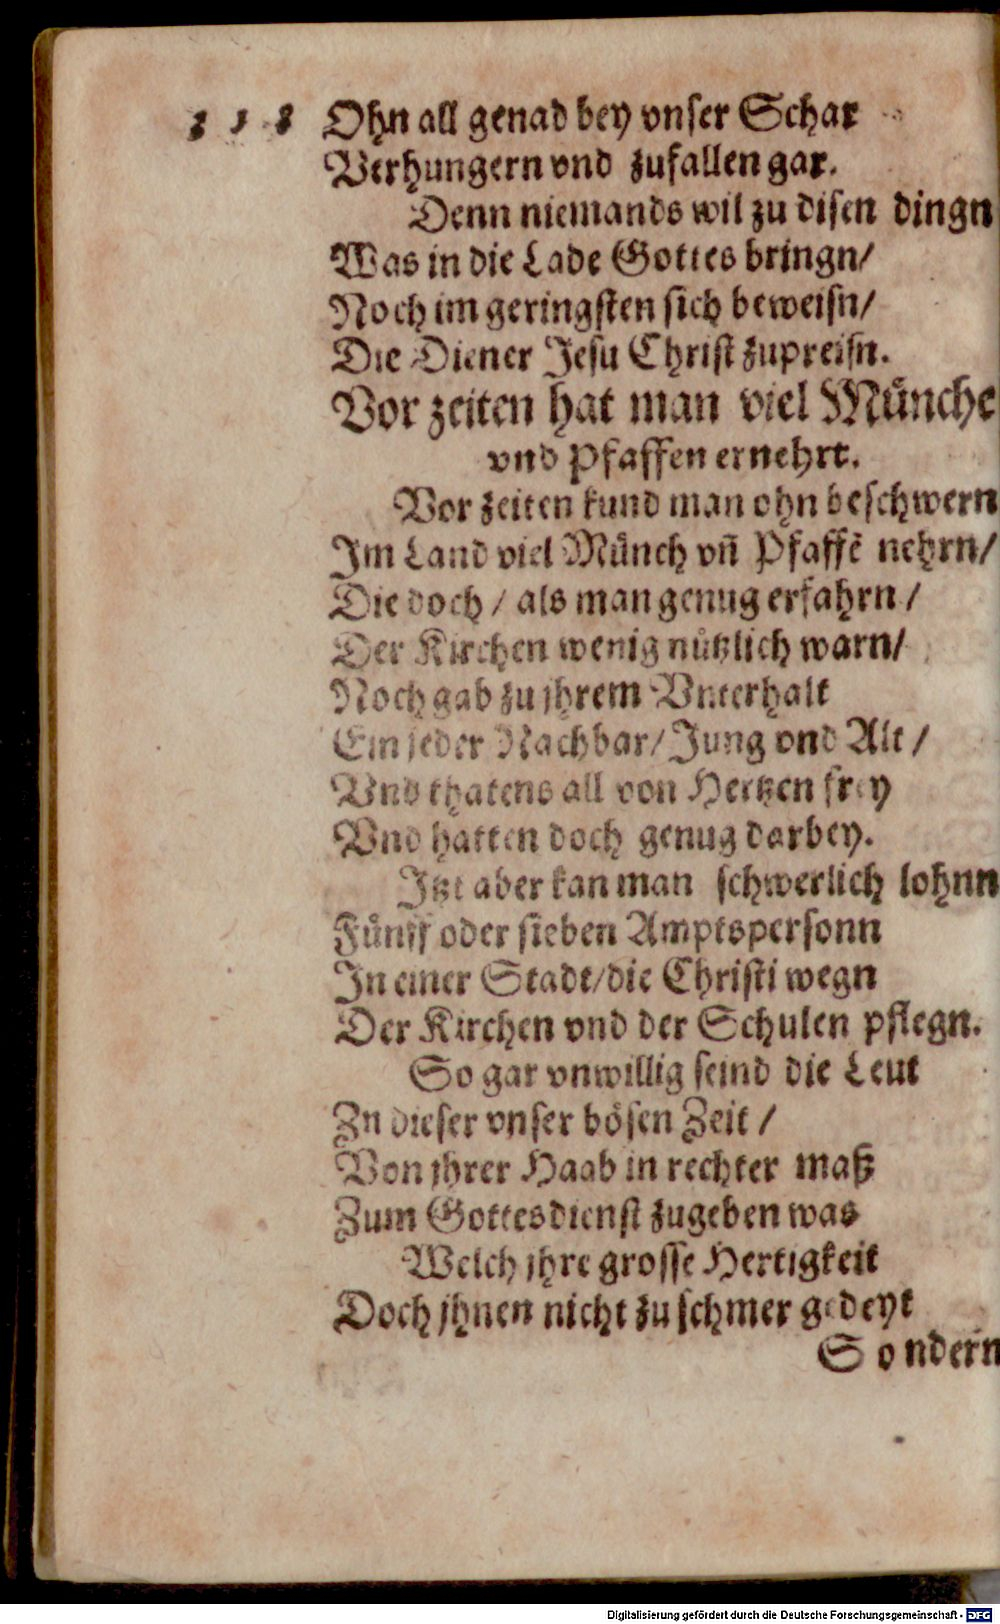 Ohn all genad bey vnser Schar
Verhungern vnd zufallen gar.
Denn niemands wil zu disen dingn
Was in die Lade Gottes bringn/
Noch im geringsten sich beweisn/
Die Diener Jesu Christ zupreisn.
Vor zeiten hat man viel Můnche
vnd Pfaffen ernehrt.
Vor zeiten kund man ohn beschwern
Im Land viel Můnch vñ Pfaffẽ nehrn/
Die doch / als man genug erfahrn /
Der Kirchen wenig nůtzlich warn/
Noch gab zu jhrem Vnterhalt
Ein jeder Nachbar/ Jung vnd Alt /
Vnd thatens all von Hertzen frey
Vnd hatten doch genug darbey.
Itzt aber kan man schwerlich lohnn
Fůnff oder sieben Amptspersonn
In einer Stadt/die Christi wegn
Der Kirchen vnd der Schulen pflegn.
So gar vnwillig seind die Leut
Zn dieser vnser bösen Zeit /
Von jhrer Haab in rechter maß
Zum Gottesdienst zugeben was
Welch jhre grosse Hertigkeit
Doch jhnen nicht zu schmer gedeyt
Sondern
Digitalisierung gefördert durch die Deutsche Forschungsgemeinschaft - DFG